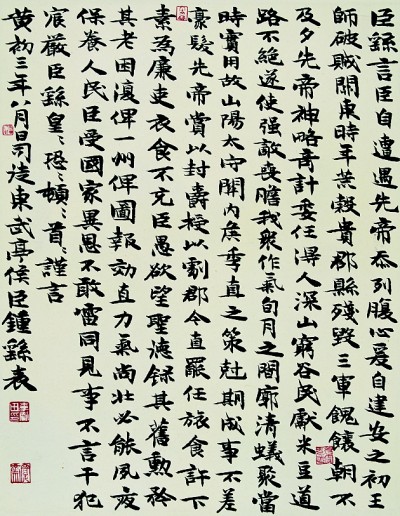 臣繇言臣自遭遇先帝忝列腹心爰自建安之初王
師破賊關東時年荒穀貴郡縣殘毀三軍餽饟朝不
及夕先帝神略奇計委任得人深山窮谷民獻米豆道
路不絕遂使強敵喪膽我眾作氣旬月之間廓清蟻聚當
時實用故山陽太守關內侯季直之策尅期成事不差
豪髮先帝賞以封爵授以劇郡今直罷任旅食許下
素為廉吏衣食不充臣愚欲望聖德錄其舊勳矜
其老困復俾一州俾圖報効直力氣尚壯必能夙夜
保養人民臣受國家異恩不敢雷同見事不言干犯
宸嚴臣繇皇々恐々頓々首々謹言
黃初三年八月日司徒東武亭侯臣鍾繇表